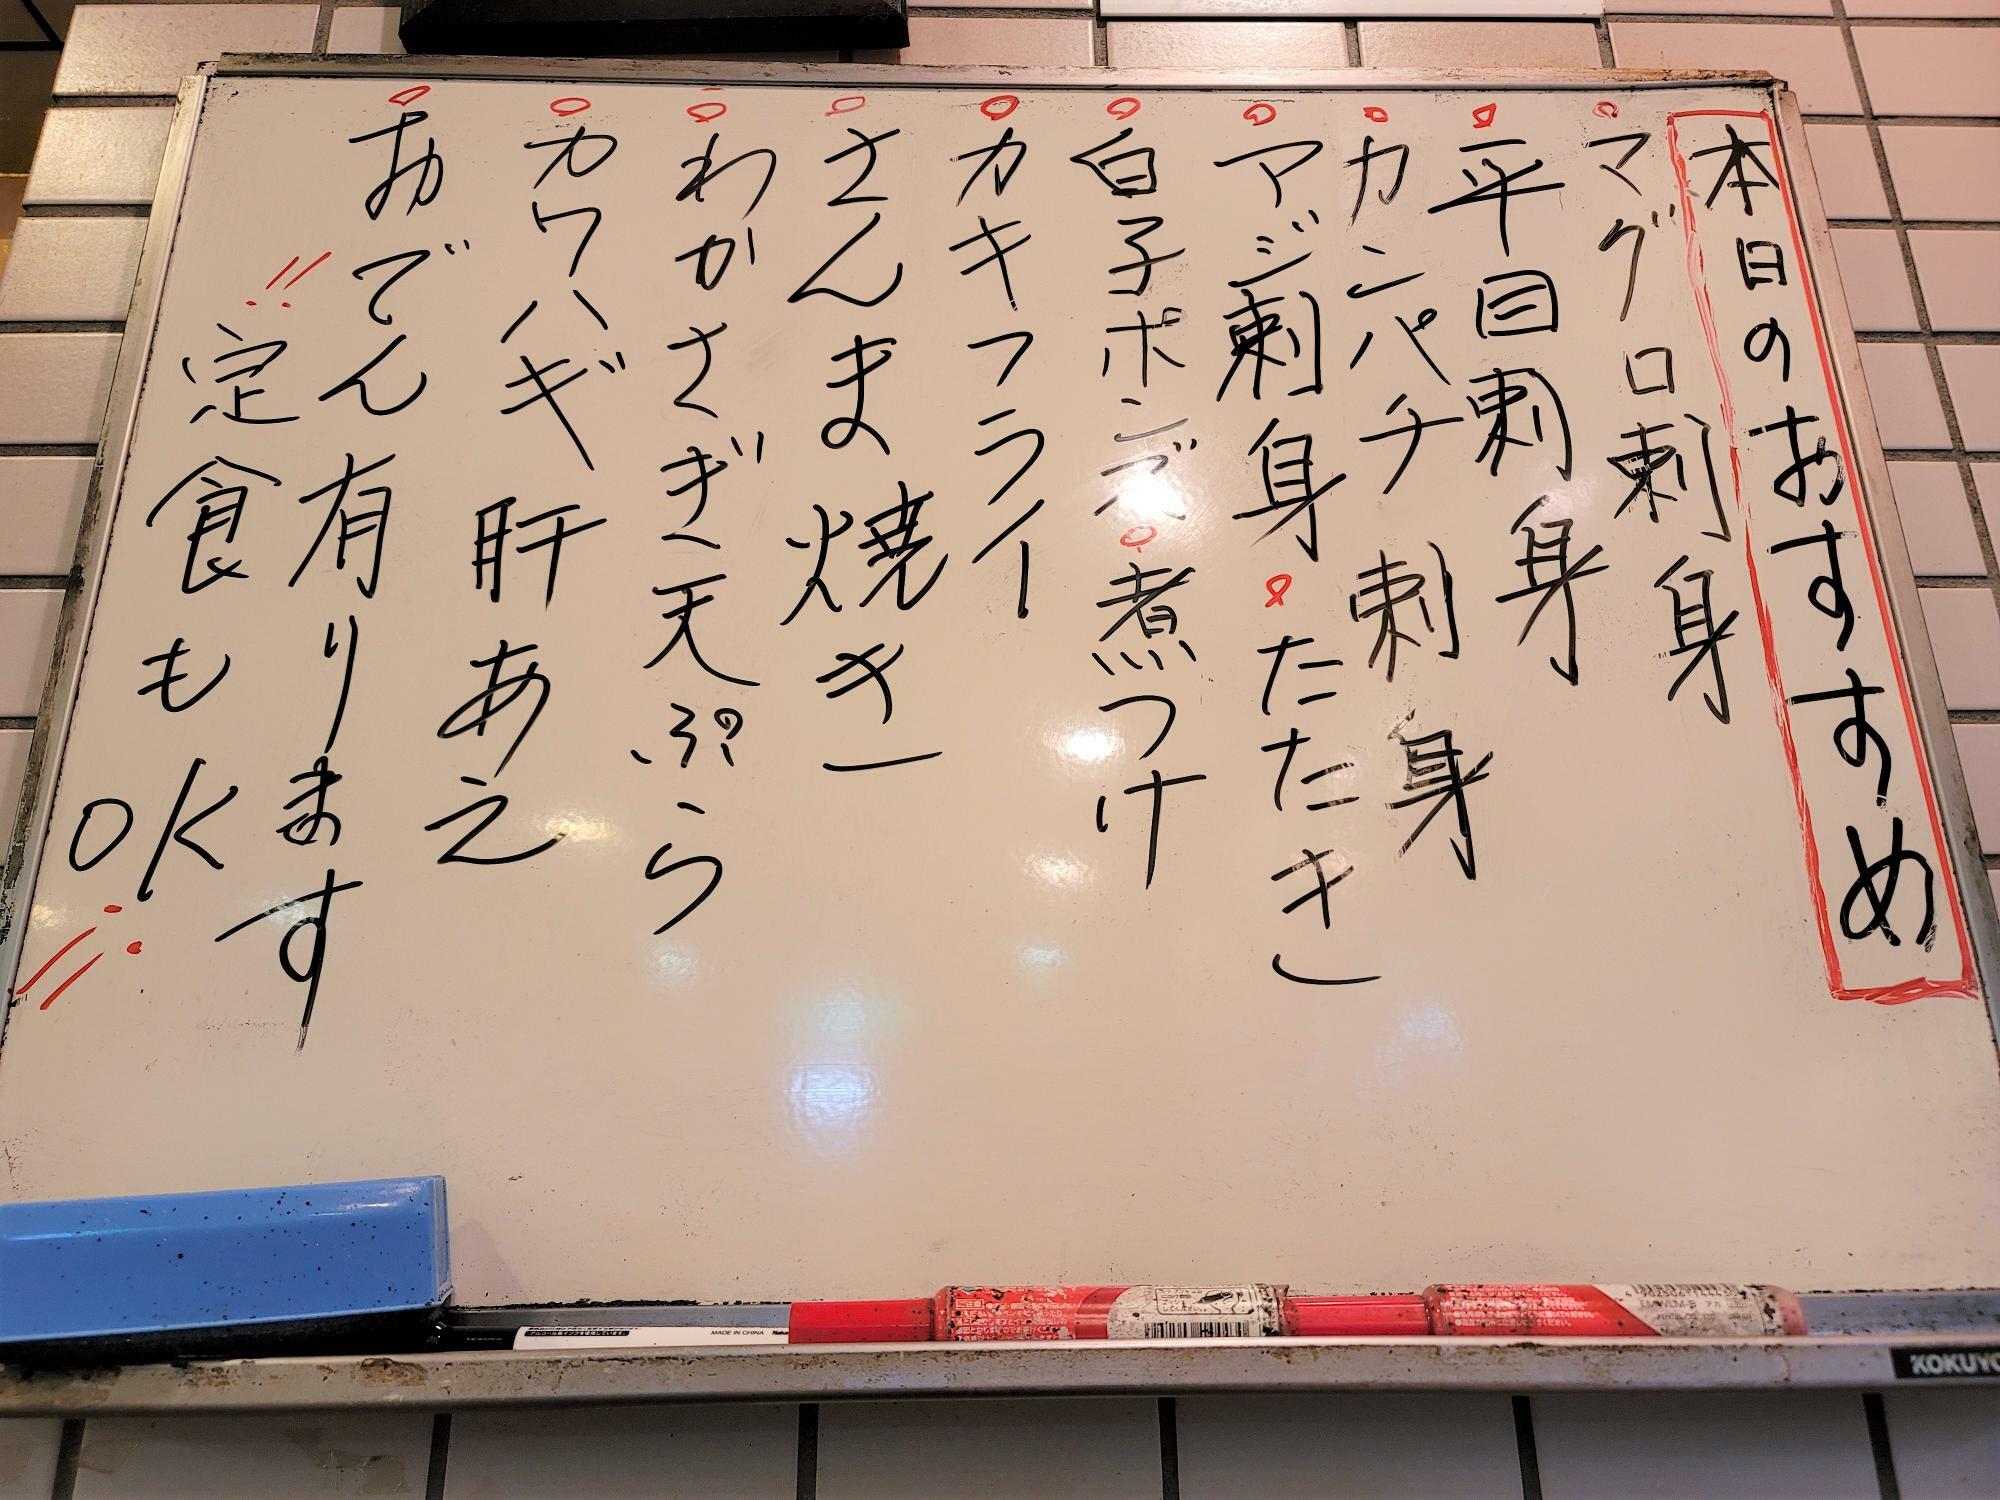 本日のおすすめ
マグロ刺身
平目刺身
カンパチ刺身
アジ刺身 たたき
白子ポンズ 煮つけ
カキフライ
さんま焼き
わかさぎ天ぷら
カワハギ肝あえ
おでん有ります
!!定食もOK!!
MADE IN CHINA
KOKUYO